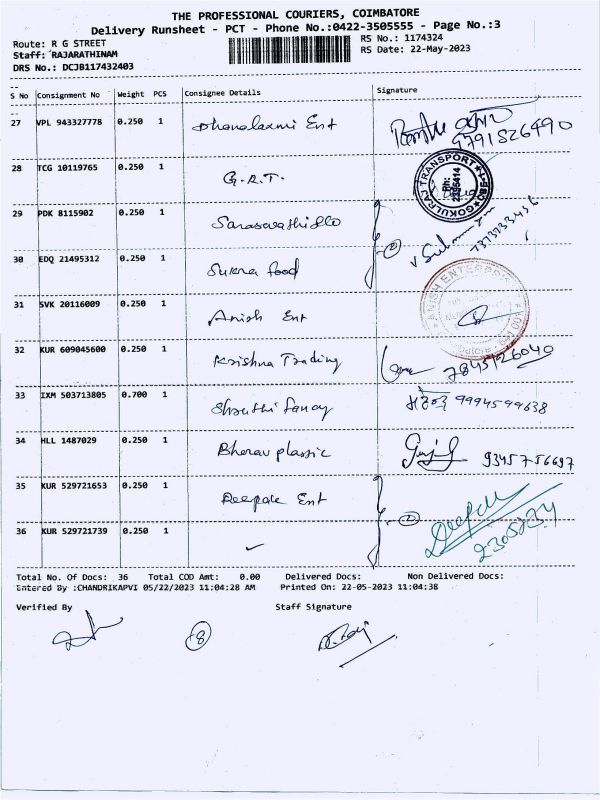 THE PROFESSIONAL COURIERS, COIMBATORE
Delivery Runsheet - PCT - Phone No.:0422-3505555 - Page No.:3
Route: R G STREET
RS No.: 1174324
Staff: RAJARATHINAM
RS Date: 22-May-2023
DRS No.: DCJB117432403
S No Consignment No Weight PCS Consignee Details Signature
27 VPL 943327778 0.250 1 Dhanalaxmi Ent
9791526490
28 TCG 10119765 0.250 1 G.R.T.
GOKULRAJ TRANSPORT
Ph:
29 PDK 8115902 0.250 1 Saraswathi &Co
30 EDQ 21495312 0.250 1 Sukra food
2
7373733456
31 SVK 20116009 0.250 1 Anish Ent
ANISH ENTERPRISE
32 KUR 609045600 0.250 1 Krishna Trading 7845126040
33 IXM 503713805 0.700 1 Shruthi fancy 9994599638
34 HLL 1487029 0.250 1 Bherav plassic 93457 56697
35 KUR 529721653 0.250 1 Deepak Ent
2
Deepak
2305234
36 KUR 529721739 0.250 1 ✓
Total No. Of Docs: 36 Total COD Amt: 0.00 Delivered Docs: Non Delivered Docs:
Entered By :CHANDRIKAPVI 05/22/2023 11:04:28 AM Printed On: 22-05-2023 11:04:38
Verified By Staff Signature
8